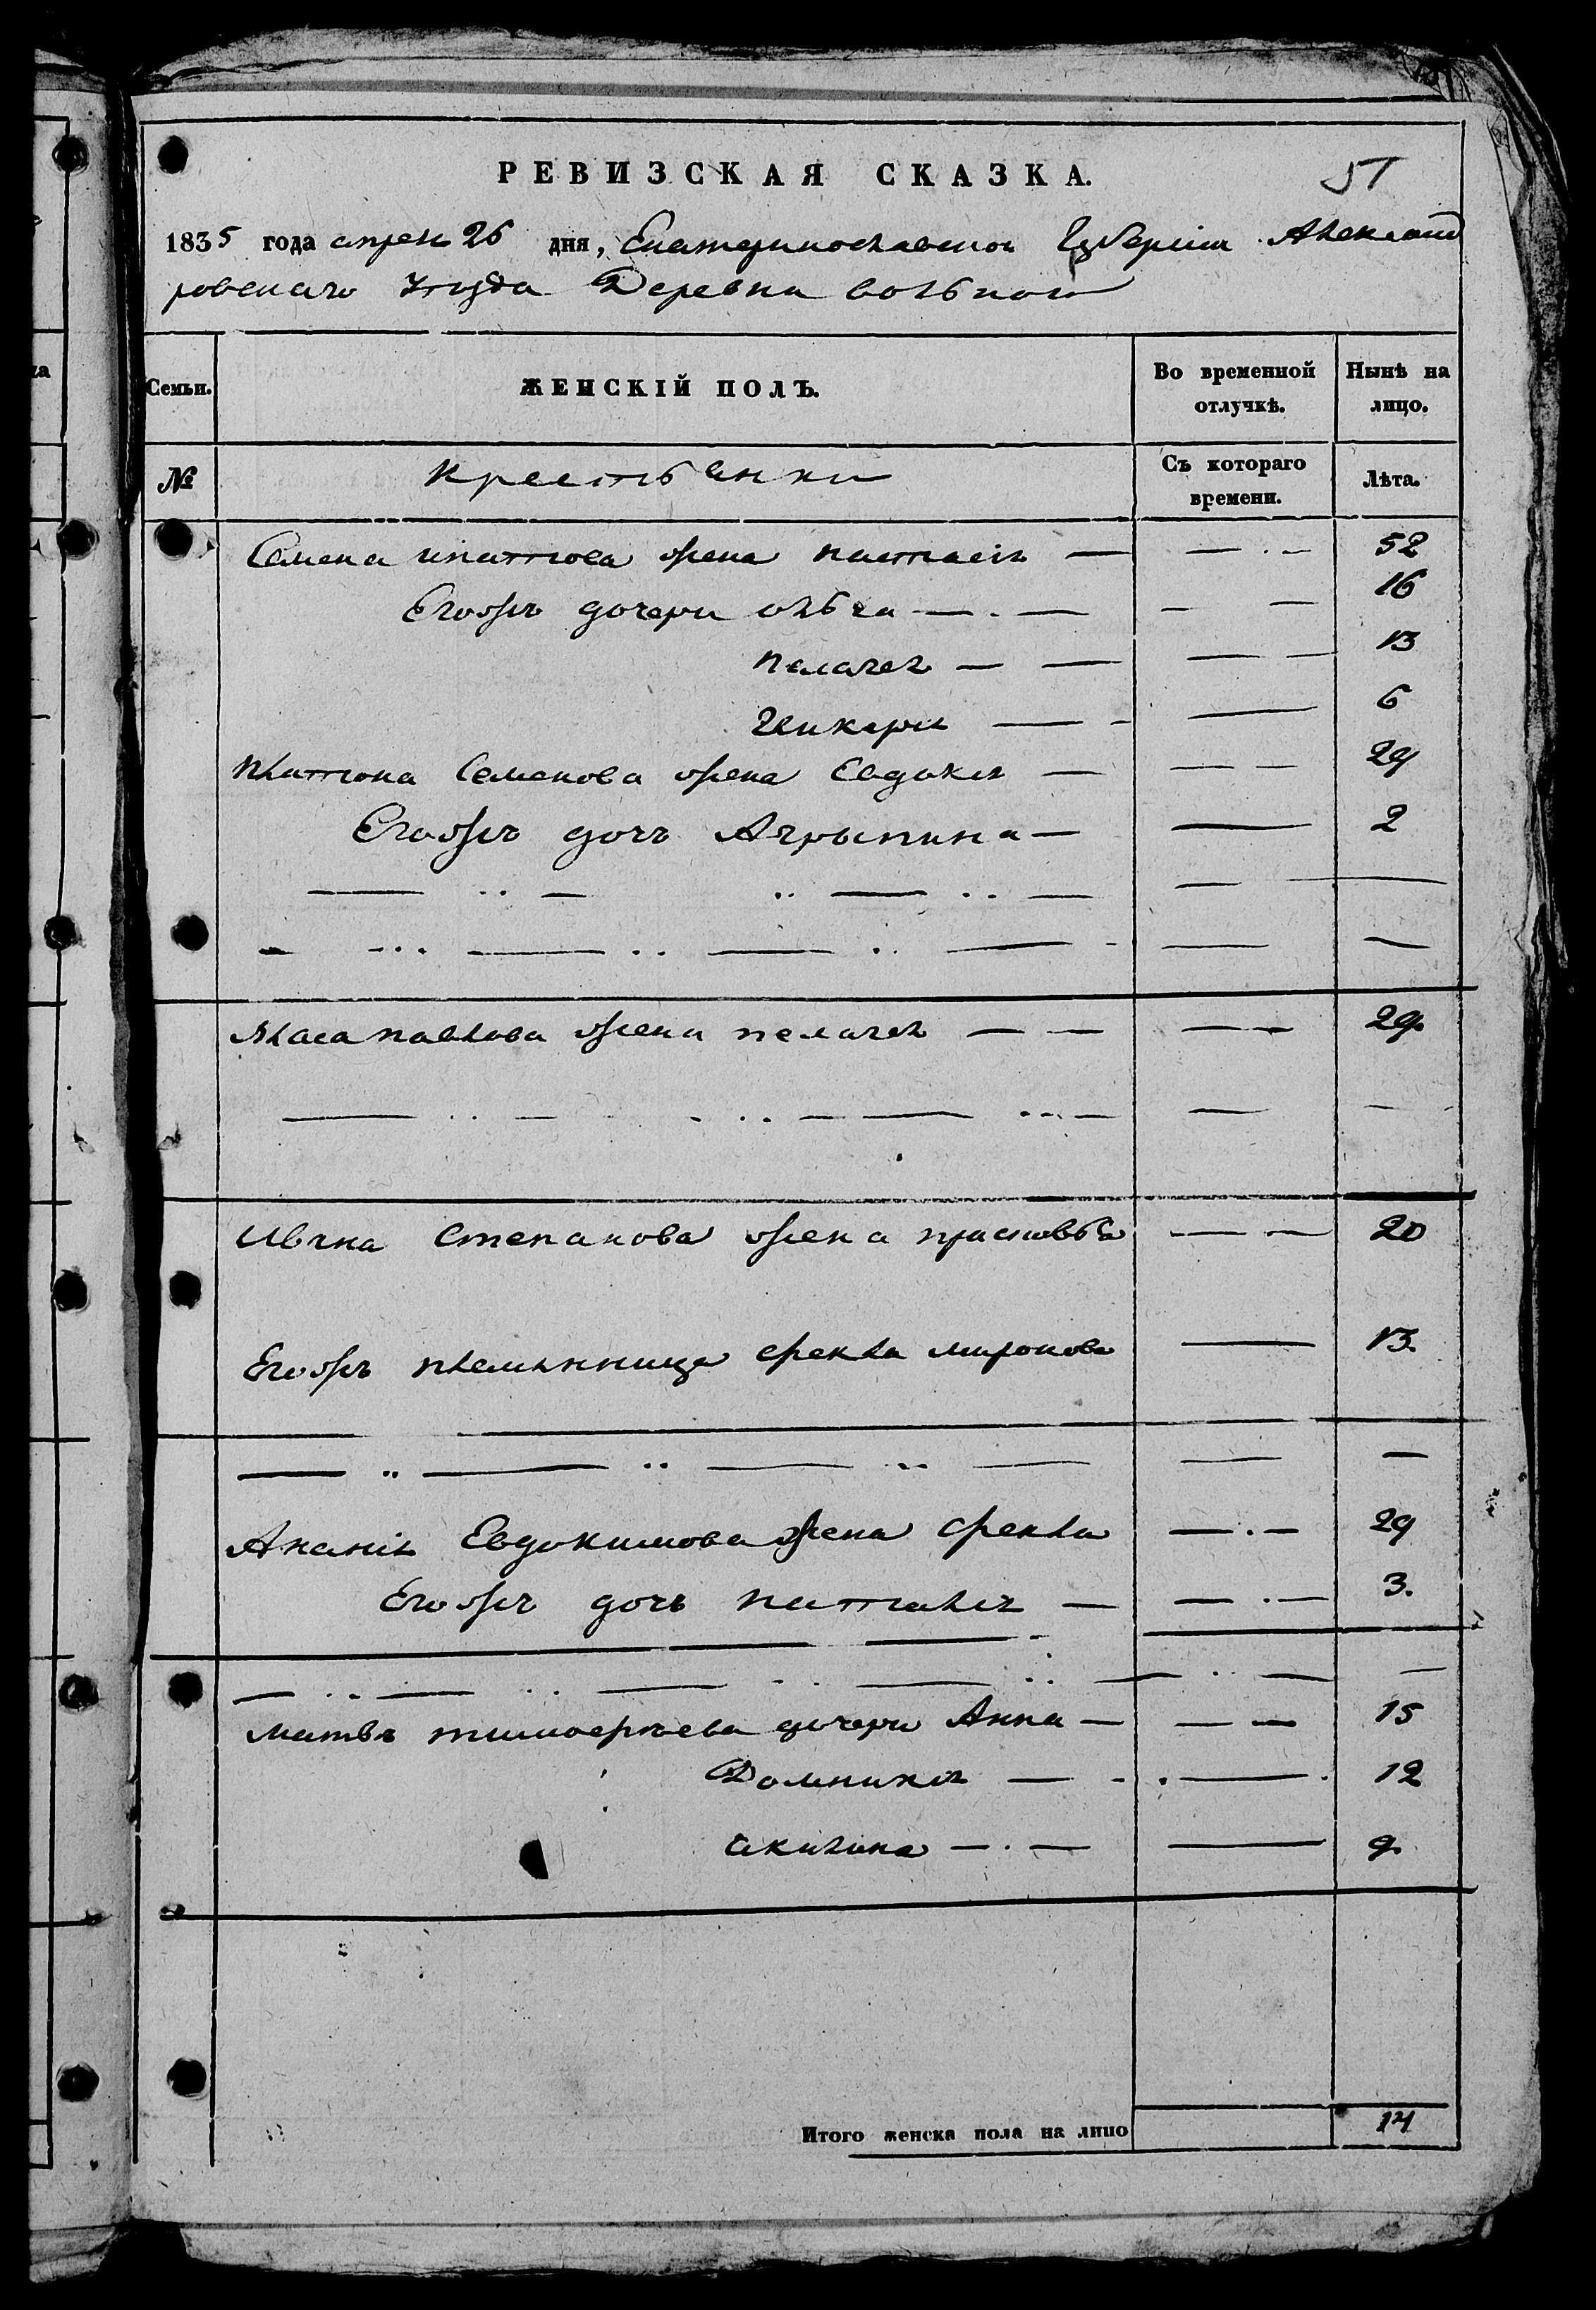 РЕВИЗСКАЯ СКАЗКА.
51
1835 года апреля 26 дня, Екатеринославской Губернiи Александ
ровскаго Уезда Деревни вольной
Семьи.
ЖЕНСКІЙ ПОЛЪ.
Во временной отлучкѣ.
Нынѣ на лицо.
№
крестьянки
Съ котораго времени.
Лѣта.
Семена ипатова жена наталiя — 52
Егожъ дочери ольга — 16
пелагея — 13
гликерiя — 6
платона Семенова жена Евдокия — 29
Егожъ дочь Агрыпина — 2
власа павлова жена пелагея — 29
Ивана Степанова жена прасковья — 20
Егожъ племянница фекла миронова — 13.
Ананiя Евдокимова жена фекла — 29
Егожъ дочь наталия — 3.
матвея тимофеева дочери Анна — 15
Домникия — 12
акилина — 9.
Итого женска пола на лицо 14